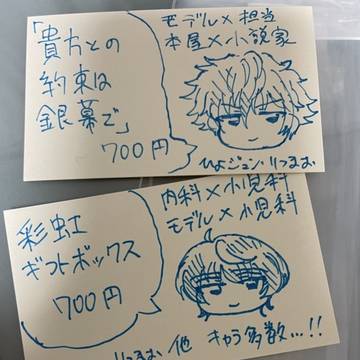 「貴方との
約束は
銀幕で」
700円
モデル×担当
本屋×小説家
ひよジュン・りつまお
彩虹
ギフトボックス
700円
内科×小児科
モデル×小児科
りつまお 他 キャラ多数…!!